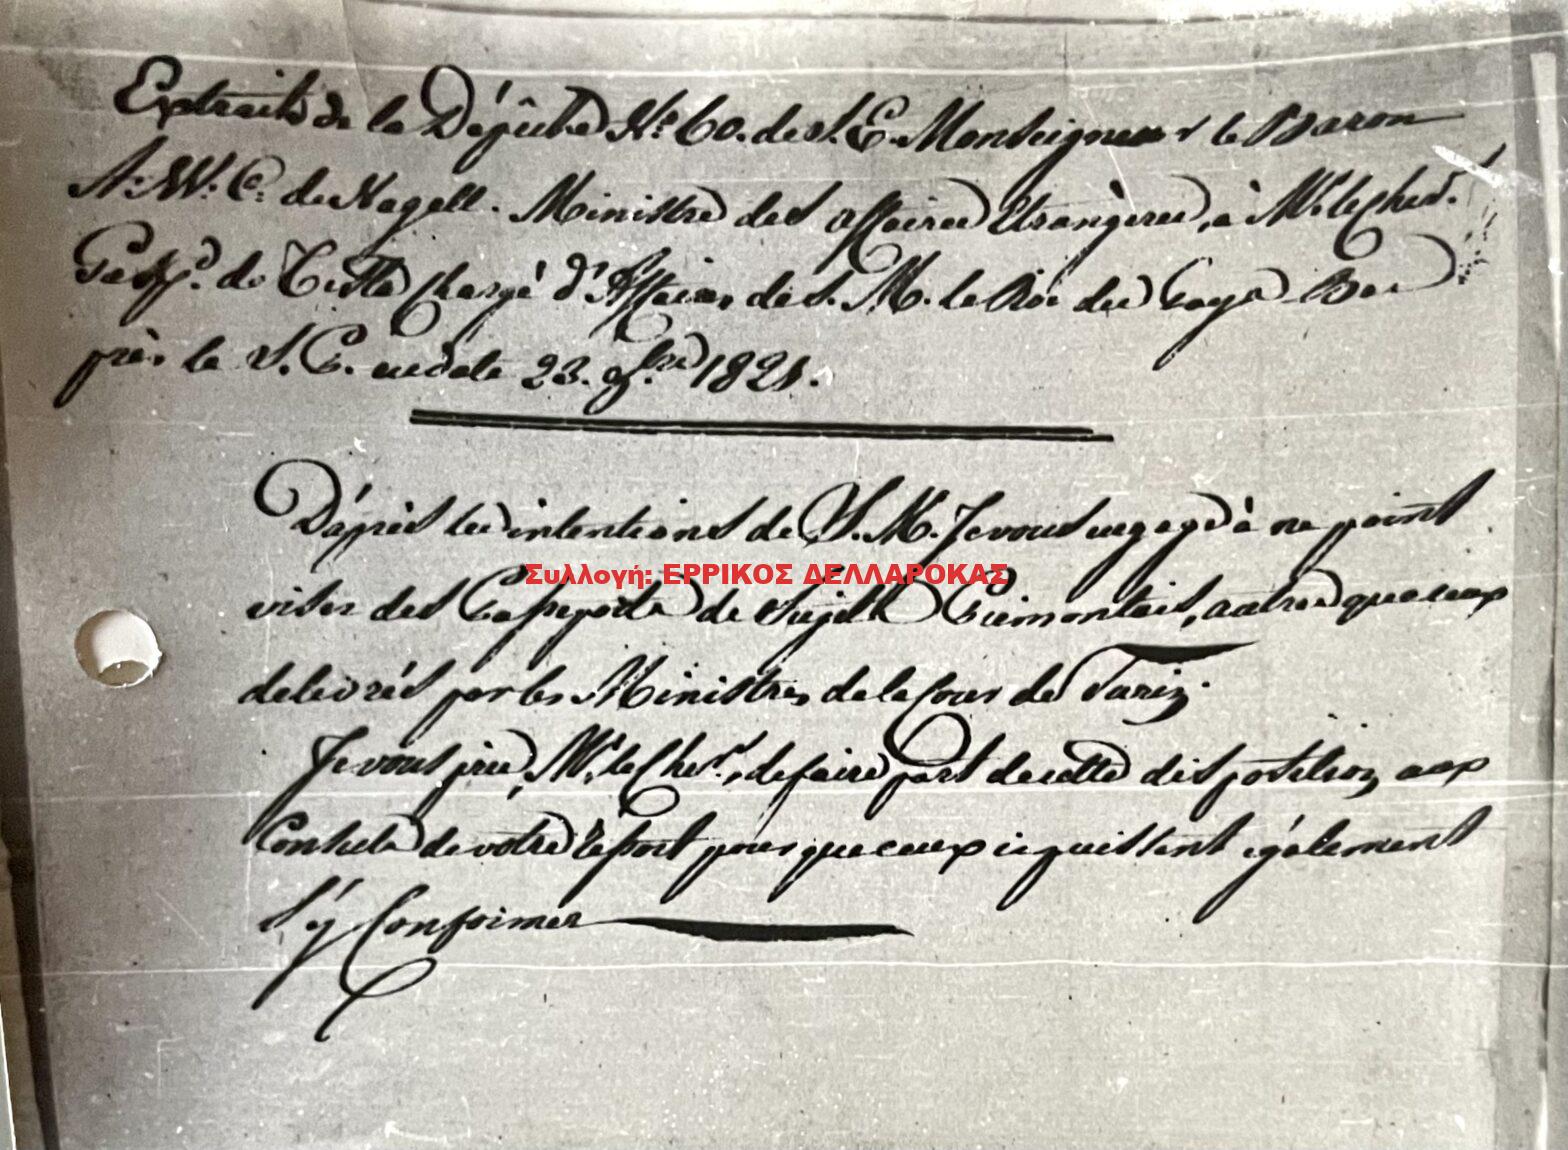 Extraits de la Dépêche Nº 60. de S. E. Monseigneur le Baron
A. W. C. de Nagell. Ministre des affaires Etrangères, à Mr. le Chevr.
Gasp.d de Testa Chargé d'Affaires de S. M. le Roi des Pays Bas
près la S. P. en date 23. 9bre 1821.
D'après les intentions de S. M. Je vous engage à ne point
viser des Passeports de Sujets Piémontais, autres que ceux
délivrés par les Ministres de la Cour de Turin.
Συλλογή: ΕΡΡΙΚΟΣ ΔΕΛΛΑΡΟΚΑΣ
Je vous prie, Mr. le Chevr., de faire part de cette disposition aux
Consuls de votre report pour que ceux ci puissent également
s'y Conformer